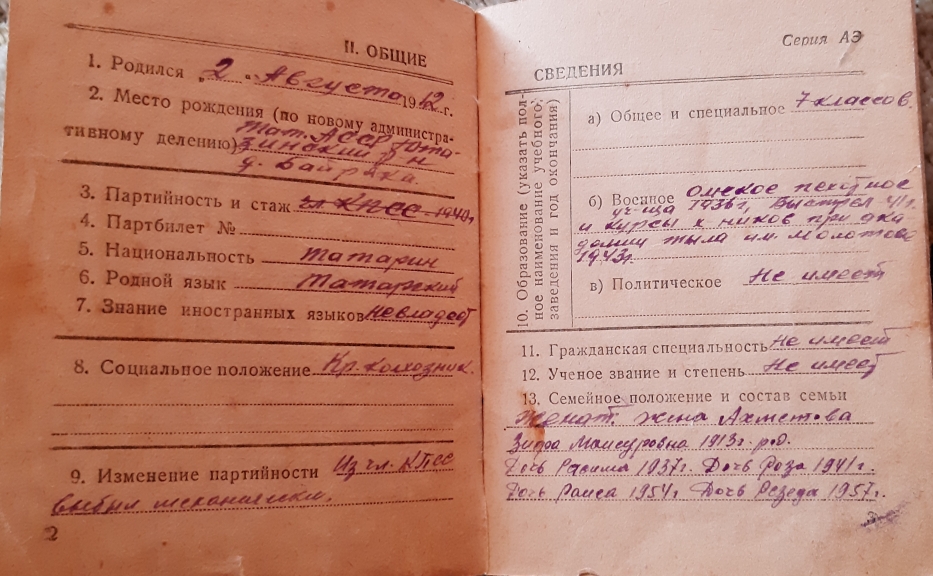 II. ОБЩИЕ
1. Родился „2" Августа 1912 г.
2. Место рождения (по новому администра-
тивному делению) Тат. АССР Юта-
зинский р-н
д. Байряка.
3. Партийность и стаж чл КПСС - 1940г
4. Партбилет №
5. Национальность татарин
6. Родной язык Татарский
7. Знание иностранных языков невладеет
8. Социальное положение Кр. колхозник.
9. Изменение партийности Из чл. КПСС
выбыл механически.
2
Серия АЭ
СВЕДЕНИЯ
10. Образование (указать пол-
ное наименование учебного
заведения и год окончания)
а) Общее и специальное 7 классов.
б) Военное Омское пехотное
уч-ща 1936г, Выстрел 41г.
и курсы к, ников при ака
демии тыла им. Молотова
1943г.
в) Политическое Не имеет
11. Гражданская специальность Не имеет
12. Ученое звание и степень Не имеет
13. Семейное положение и состав семьи
Женат. жена Ахметова
Мансуровна 1913г. р.
Дочь Расима 1937г. Дочь Роза 1941г.
Дочь Раиса 1954г Дочь Резеда 1957г.